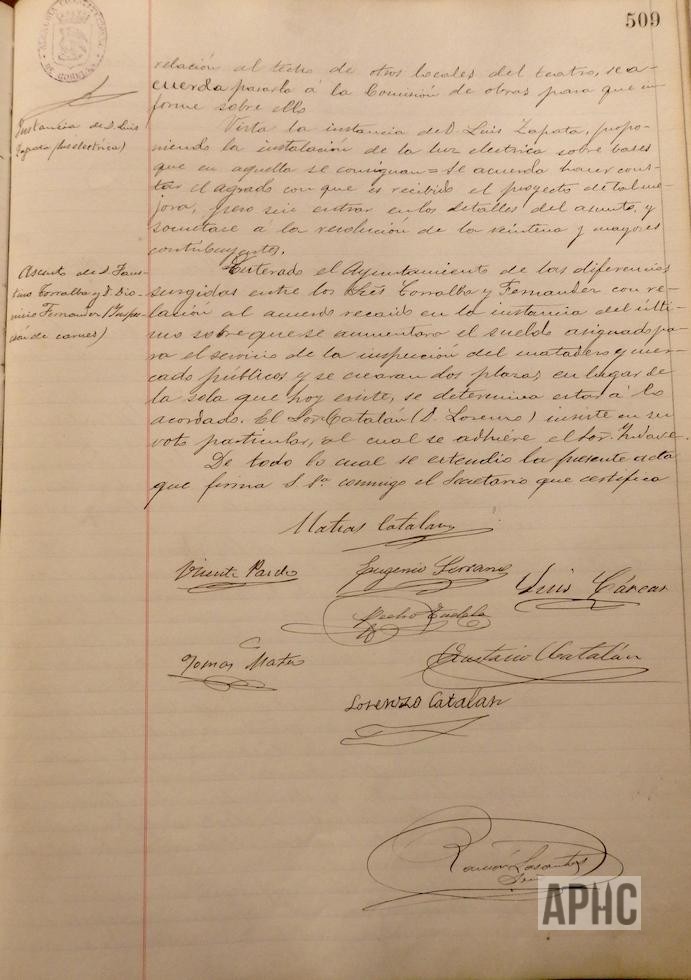 509
relación al techo de otros locales del teatro, se a-
cuerda pasarla á la Comisión de obras para que in
forme sobre ello
Instancia de D. Luis
Zapata (luz electrica)
Vista la instancia de D. Luis Zapata, propo-
niendo la instalación de la luz electrica sobre bases
que en aquella se consignan = Se acuerda hacer cons-
tar el agrado con que es recibido el proyecto de tal me-
jora, pero sin entrar en los detalles del asunto, y
someterse á la resolución de la veintena y mayores
contribuyentes.
Asunto de D. Faus-
tino Torralba y D. Dio-
nisio Fernander (Inspec-
ción de carnes)
Enterado el Ayuntamiento de las diferencias
surgidas entre los Sres Torralba y Fernander con re-
lación al acuerdo recaido en la instancia del últi-
mo sobre que se aumentara el sueldo asignado pa-
ra el servicio de la inspección del matadero y mer-
cado públicos y se crearan dos plazas en lugar de
la sola que hoy existe, se determina estar á lo
acordado. El Sor. Catalán (D. Lorenzo) insiste en su
voto particular, al cual se adhiere el Sor.
De todo lo cual se estendio la presente acta
que firma S. Sª conmigo el Secretario que certifico
Matias Catalan
Vicente Pardo
Eugenio Serrano
Luis Cárcar
Pedro Tudela
Tomas Mateo
Eustasio Catalán
Lorenzo Catalan
Ramón Lasantas
Srio
APHC